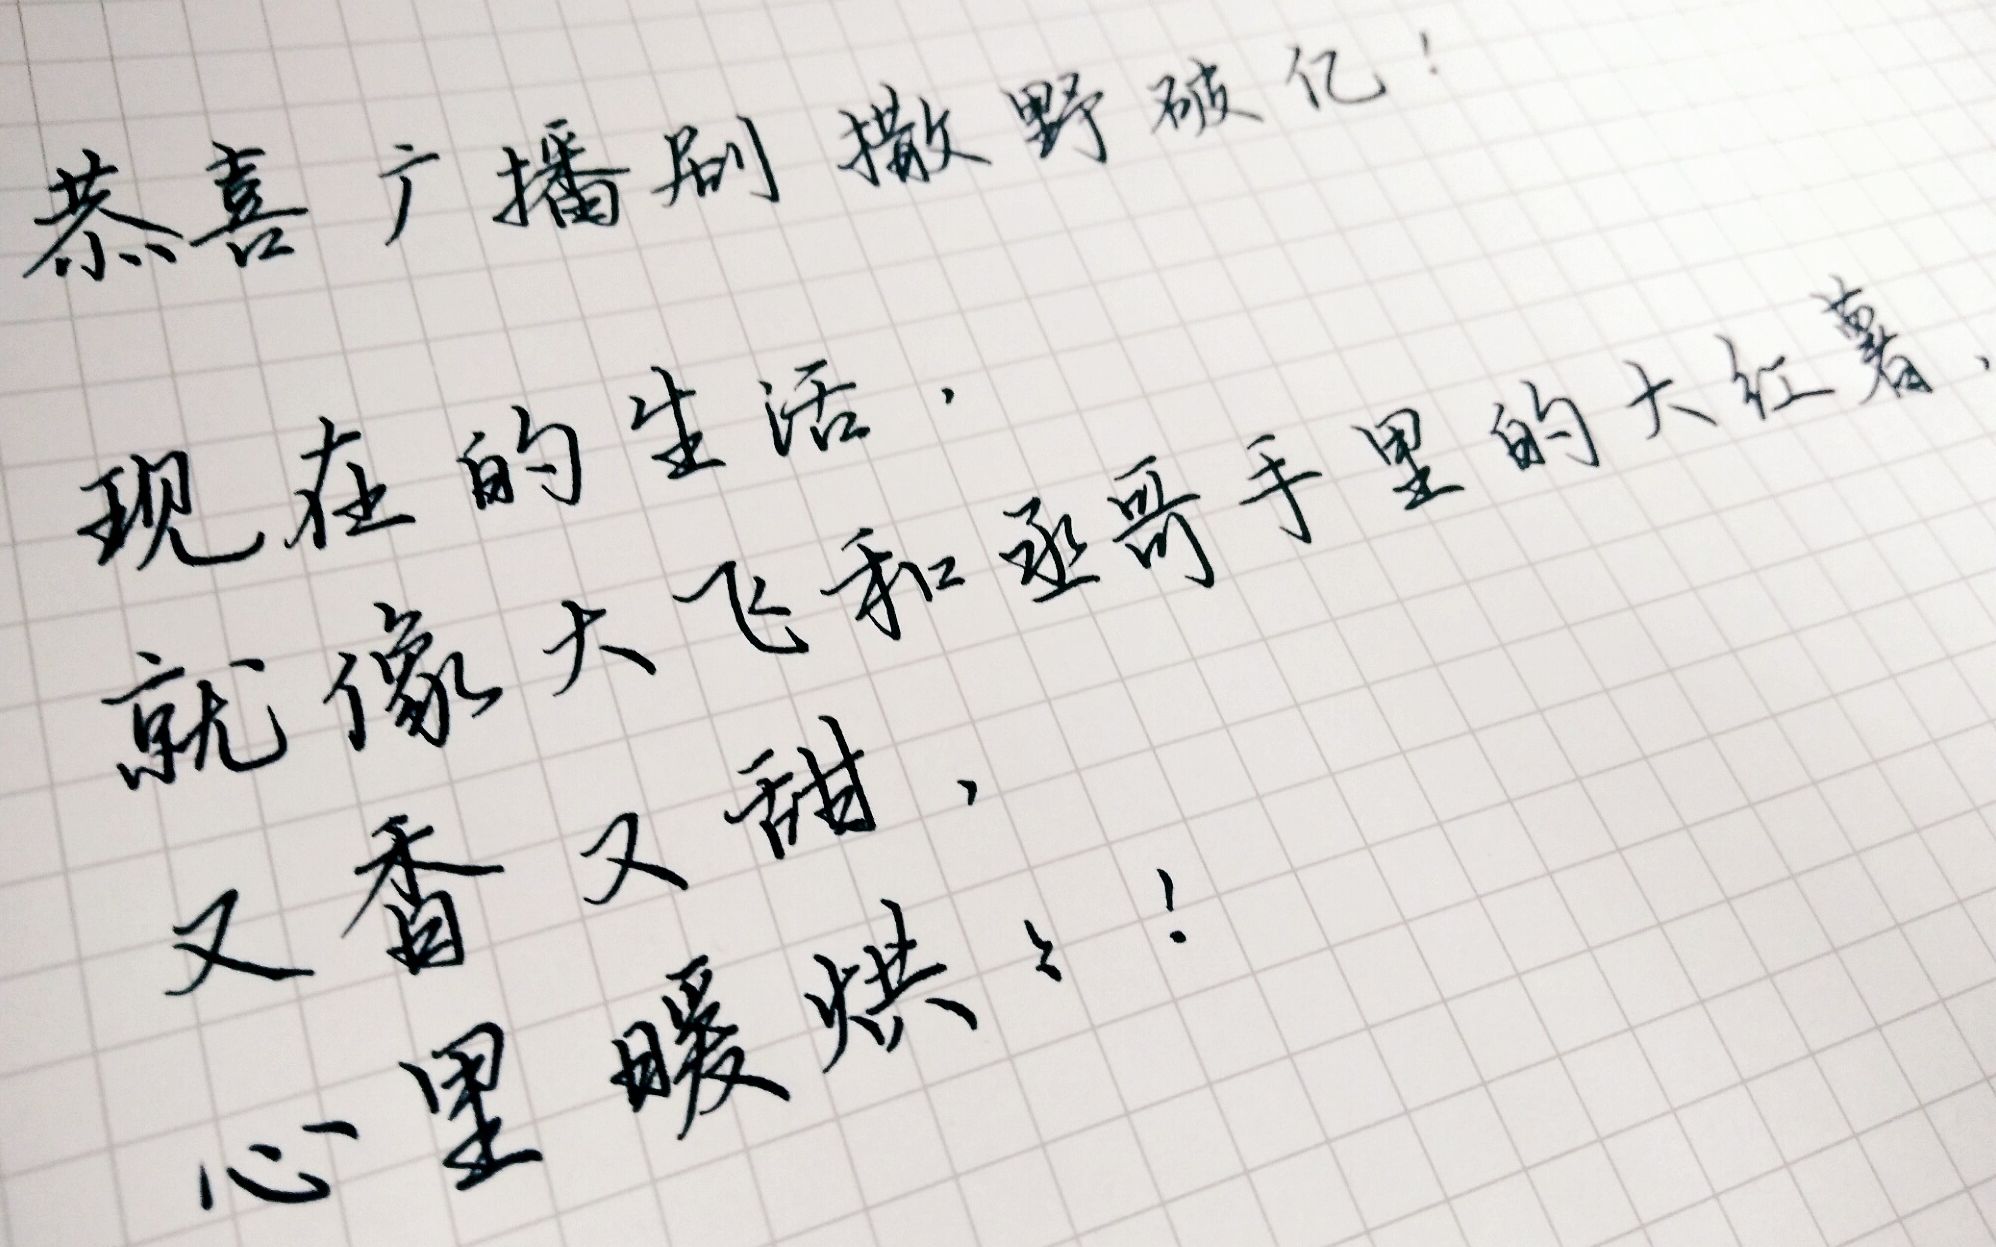 恭喜广播剧撒野破亿！
现在的生活，
就像大飞和丞哥手里的大红薯，
又香又甜，
心里暖烘々！